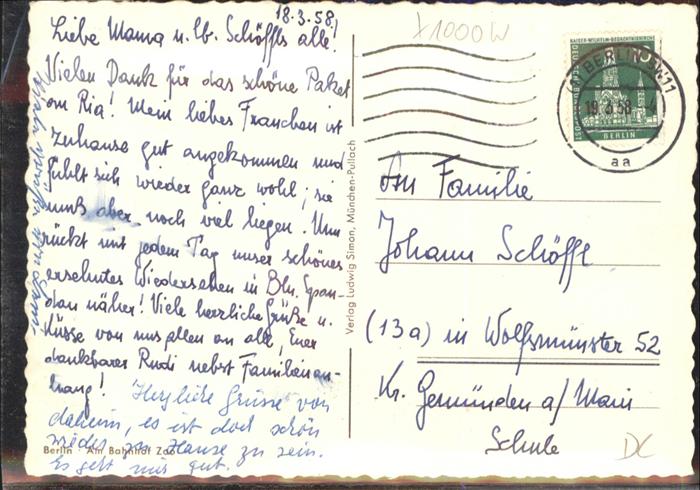 18.3.58!
Liebe Mama u. lb. Schöffls alle!
Vielen Dank für das schöne Paket
an Ria! Mein liebes Frauchen ist
zuhause gut angekommen und
fühlt sich wieder ganz wohl; sie
muß aber noch viel liegen. Nun
rückt mit jedem Tag unser schönes
ersehntes Wiedersehen in Bln. Span-
dau näher! Viele herzliche Grüße u.
Küsse von uns allen an alle, Euer
dankbarer Rudi nebst Familienan-
hang!
Herzliche Grüsse von
daheim, es ist doch schön
wieder zu Hause zu sein.
Es geht mir gut.
Berlin · Am Bahnhof Zoo
Verlag Ludwig Simon, München-Pullach
X1000W
KAISER-WILHELM-GEDÄCHTNISKIRCHE
DEUTSCHE BUNDESPOST
BERLIN
BERLIN SW11
19.3.58
aa
An Familie
Johann Schöffl
(13a) in Wolfsmünster 52
Kr. Gemünden a/Main
Schule
DC